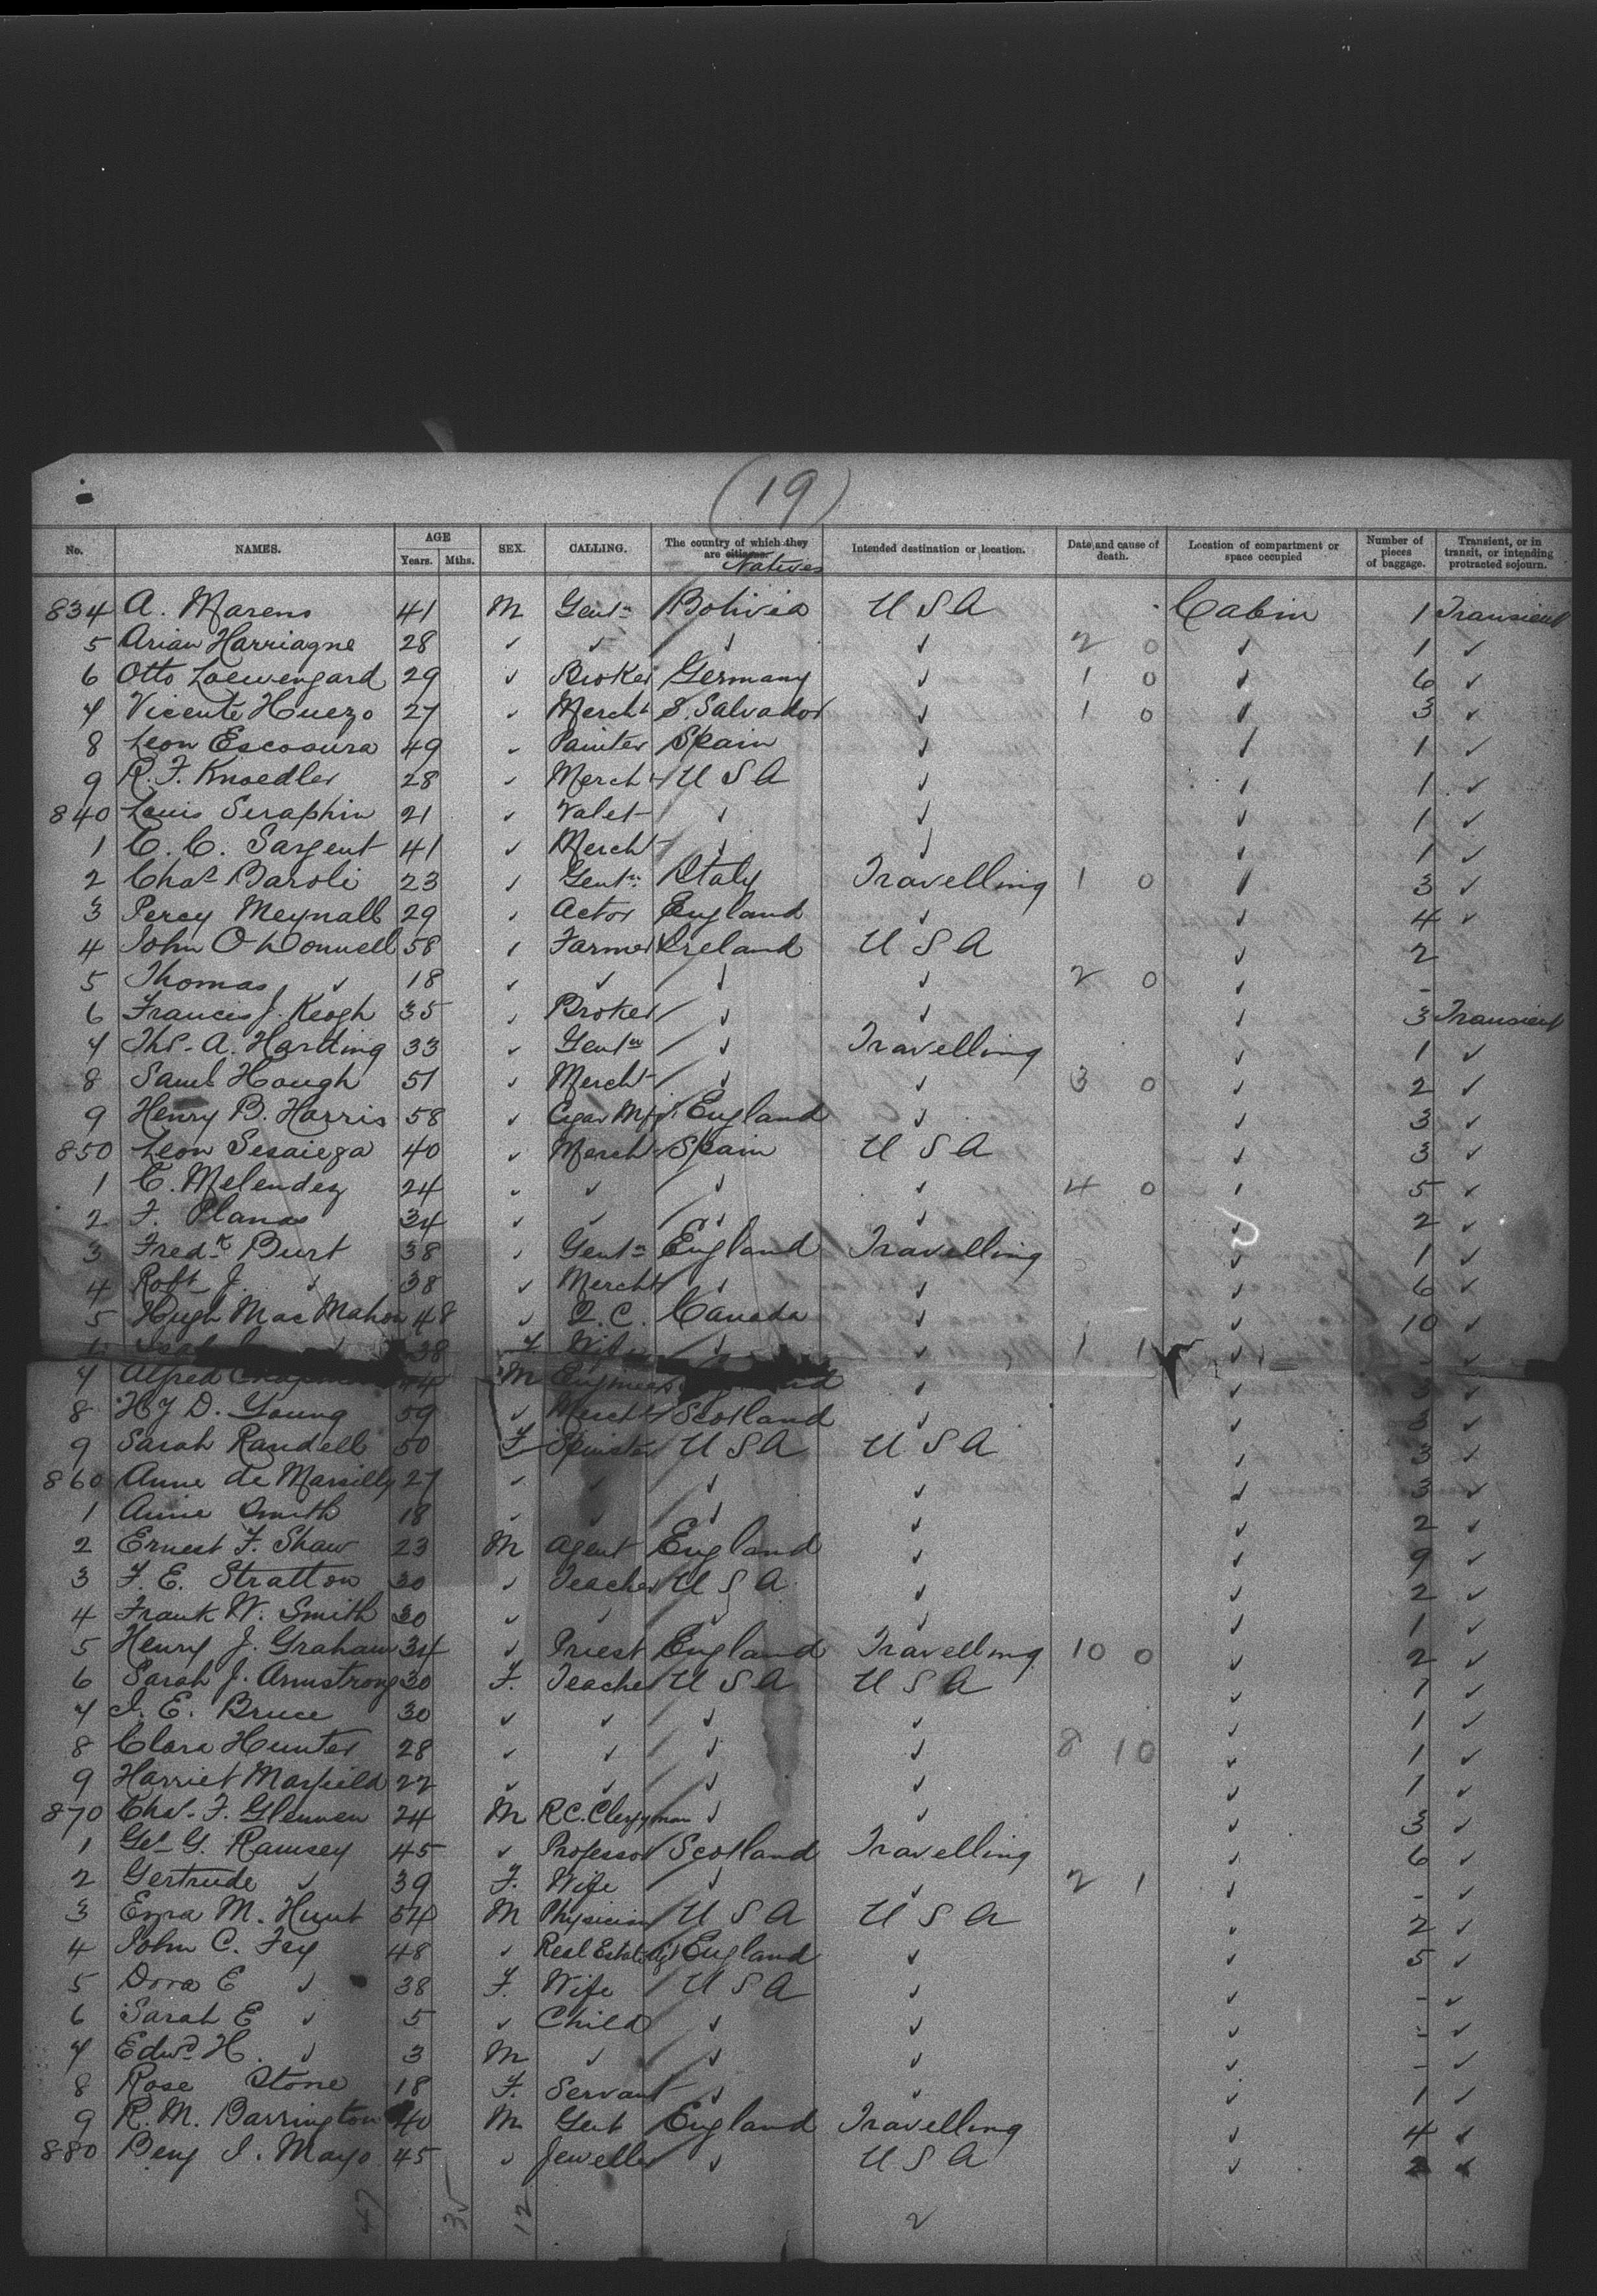 (19)
No. NAMES. AGE Years. Mths. SEX. CALLING. The country of which they are citizens. Natives Intended destination or location. Date and cause of death. Location of compartment or space occupied Number of pieces of baggage. Transient, or in transit, or intending protracted sojourn.
834 A. Marens 41 M Gentn Bolivia U S A Cabin 1 Transient
5 Arian Harriagne 28 ✓ ✓ ✓ ✓ 2 0 ✓ 1 ✓
6 Otto Loewengard 29 ✓ Broker Germany ✓ 1 0 ✓ 6 ✓
7 Vicente Huezo 27 ✓ Mercht S. Salvador ✓ 1 0 ✓ 3 ✓
8 Leon Escosura 49 ✓ Painter Spain ✓ ✓ 1 ✓
9 R. F. Knoedler 28 ✓ Mercht U S A ✓ ✓ 1 ✓
840 Louis Seraphin 21 ✓ Valet ✓ ✓ ✓ 1 ✓
1 C. C. Sargent 41 ✓ Mercht ✓ ✓ ✓ 1 ✓
2 Chas Baroli 23 ✓ Gentn Italy Travelling 1 0 ✓ 3 ✓
3 Percy Meynall 29 ✓ Actor England ✓ ✓ 4 ✓
4 John O'Donnell 58 ✓ Farmer Ireland U S A ✓ 2
5 Thomas ✓ 18 ✓ ✓ ✓ ✓ 2 0 ✓ -
6 Francis J. Keogh 35 ✓ Broker ✓ ✓ ✓ 3 Transient
7 Ths. A. Harding 33 ✓ Gentn ✓ Travelling ✓ 1 ✓
8 Saml Hough 51 ✓ Mercht ✓ ✓ 3 0 ✓ 2 ✓
9 Henry B. Harris 58 ✓ Cigar Mfr. England ✓ ✓ 3 ✓
850 Leon Sesaiega 40 ✓ Mercht Spain U S A ✓ 3 ✓
1 C. Melendez 24 ✓ ✓ ✓ ✓ 4 0 ✓ 5 ✓
2 F. Planas 34 ✓ ✓ ✓ ✓ ✓ 2 ✓
3 Fredk Burt 38 ✓ Gentn England Travelling ✓ 1 ✓
4 Robt J. ✓ 38 ✓ Mercht ✓ ✓ ✓ 6 ✓
5 Hugh Mac Mahon 48 ✓ Q.C. Canada ✓ ✓ 10 ✓
✓ 38 F. Wife ✓ ✓ 1 1 ✓ - ✓
7 Alfred 44 M Engineer ✓ ✓ 3 ✓
8 Hy D. Young 59 ✓ Mercht Scotland ✓ ✓ 3 ✓
9 Sarah Randell 50 F Spinster U S A U S A ✓ 3 ✓
860 Anne de Marsilly 27 ✓ ✓ ✓ ✓ ✓ 3 ✓
1 Annie Smith 18 ✓ ✓ ✓ ✓ ✓ 2 ✓
2 Ernest F. Shaw 23 M Agent England ✓ ✓ 9 ✓
3 F. E. Stratton 30 ✓ Teacher U S A ✓ ✓ 2 ✓
4 Frank W. Smith 30 ✓ ✓ ✓ ✓ ✓ 1 ✓
5 Henry J. Graham 34 ✓ Priest England Travelling 10 0 ✓ 2 ✓
6 Sarah J. Armstrong 30 F. Teacher U S A U S A ✓ 1 ✓
7 I. E. Bruce 30 ✓ ✓ ✓ ✓ ✓ 1 ✓
8 Clara Hunter 28 ✓ ✓ ✓ ✓ 8 10 ✓ 1 ✓
9 Harriet Maxfield 22 ✓ ✓ ✓ ✓ ✓ 1 ✓
870 Chs. F. Glennen 24 M R.C. Clergyman ✓ ✓ ✓ 3 ✓
1 Geo G. Ramsey 45 ✓ Professor Scotland Travelling ✓ 6 ✓
2 Gertrude ✓ 39 F. Wife ✓ ✓ 2 1 ✓ - ✓
3 Ezra M. Hunt 54 M Physician U S A U S A ✓ 2 ✓
4 John C. Fry 48 ✓ Real Estate Agt England ✓ ✓ 5 ✓
5 Dora E ✓ 38 F. Wife U S A ✓ ✓ - ✓
6 Sarah E ✓ 5 ✓ Child ✓ ✓ ✓ - ✓
7 Edwd H. ✓ 3 M ✓ ✓ ✓ ✓ - ✓
8 Rose Stone 18 F. Servant ✓ ✓ ✓ 1 ✓
9 R. M. Barrington 40 M Gent England Travelling ✓ 4 ✓
880 Benj I. Mayo 45 ✓ Jeweller ✓ U S A ✓ 2 ✓
47 35 12 2